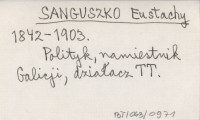 SANGUSZKO Eustachy
1842-1903.
Polityk, namiestnik
Galicji, działacz TT.
TOT/043/0971